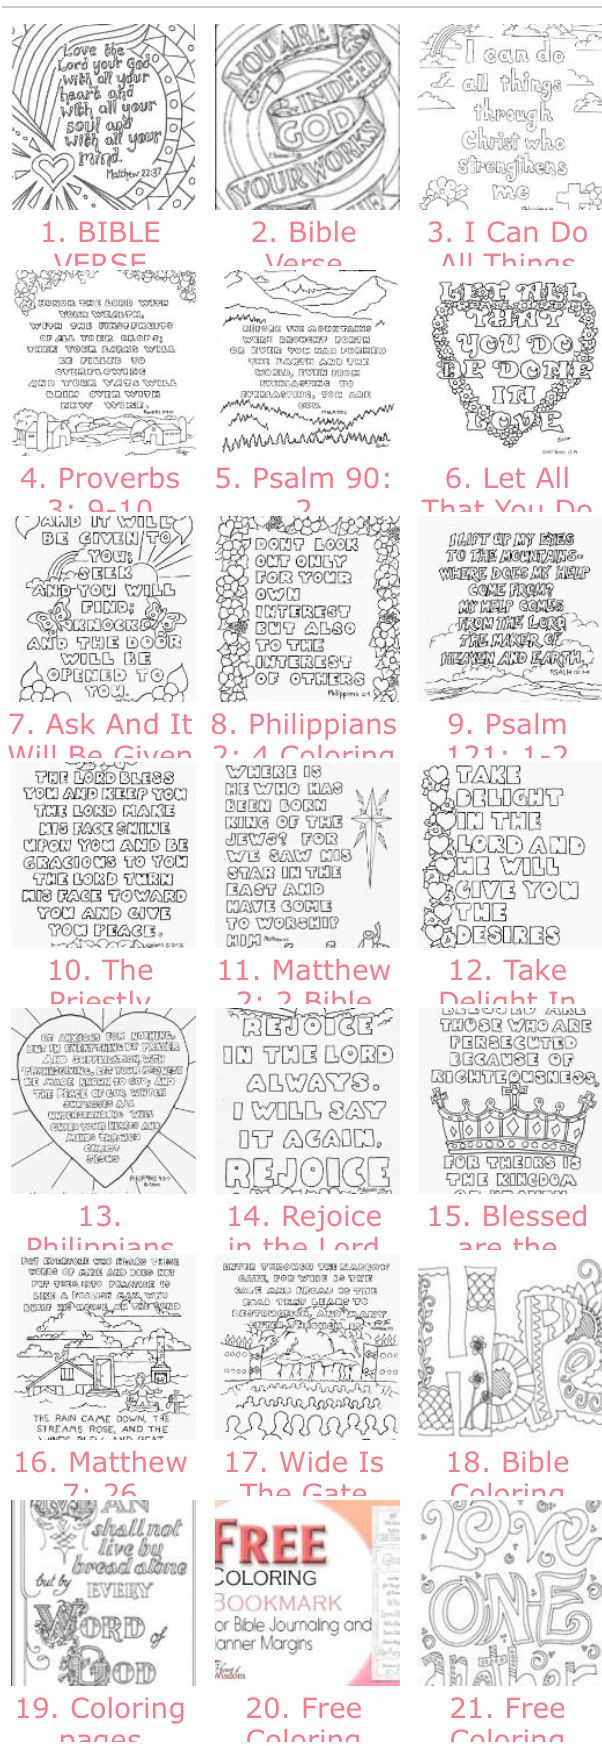 Love the
Lord your God
with all your
heart and
with all your
soul and
with all your
mind.
Matthew 22:37
YOU ARE
INDEED
GOD
YOUR WORKS
I can do
all things
through
Christ who
strengthens
me
1. BIBLE
VERSE
2. Bible
Verse
3. I Can Do
All Things
HONOR THE LORD WITH
YOUR WEALTH,
WITH THE FIRST FRUITS
OF ALL YOUR CROPS;
THEN YOUR BARNS WILL
BE FILLED TO
OVERFLOWING
AND YOUR VATS WILL
BRIM OVER WITH
NEW WINE.
BEFORE THE MOUNTAINS
WERE BROUGHT FORTH
OR EVER YOU HAD FORMED
THE EARTH AND THE
WORLD, EVEN FROM
EVERLASTING TO
EVERLASTING, YOU ARE
GOD.
LET ALL
THAT
YOU DO
BE DONE
IN
LOVE
4. Proverbs
3: 9-10
5. Psalm 90:
2
6. Let All
That You Do
AND IT WILL
BE GIVEN TO
YOU;
SEEK
AND YOU WILL
FIND;
KNOCK
AND THE DOOR
WILL BE
OPENED TO
YOU.
DONT LOOK
OUT ONLY
FOR YOUR
OWN
INTEREST
BUT ALSO
TO THE
INTEREST
OF OTHERS
Philippians 2:4
I LIFT UP MY EYES
TO THE MOUNTAINS-
WHERE DOES MY HELP
COME FROM?
MY HELP COMES
FROM THE LORD
THE MAKER OF
HEAVEN AND EARTH.
PSALM 121:1-2
7. Ask And It
Will Be Given
8. Philippians
2: 4 Coloring
9. Psalm
121: 1-2
THE LORD BLESS
YOU AND KEEP YOU
THE LORD MAKE
HIS FACE SHINE
UPON YOU AND BE
GRACIOUS TO YOU
THE LORD TURN
HIS FACE TOWARD
YOU AND GIVE
YOU PEACE.
WHERE IS
HE WHO HAS
BEEN BORN
KING OF THE
JEWS? FOR
WE SAW HIS
STAR IN THE
EAST AND
HAVE COME
TO WORSHIP
HIM
TAKE
DELIGHT
IN THE
LORD AND
HE WILL
GIVE YOU
THE
DESIRES
10. The
Priestly
11. Matthew
2: 2 Bible
12. Take
Delight In
BE ANXIOUS FOR NOTHING,
BUT IN EVERYTHING BY PRAYER
AND SUPPLICATION, WITH
THANKSGIVING, LET YOUR REQUEST
BE MADE KNOWN TO GOD; AND
THE PEACE OF GOD, WHICH
SURPASSES ALL
UNDERSTANDING WILL
GUARD YOUR HEARTS AND
MINDS THROUGH
CHRIST
JESUS
REJOICE
IN THE LORD
ALWAYS.
I WILL SAY
IT AGAIN,
REJOICE
BLESSED ARE
THOSE WHO ARE
PERSECUTED
BECAUSE OF
RIGHTEOUSNESS,
FOR THEIRS IS
THE KINGDOM
OF HEAVEN
13.
Philippians
14. Rejoice
in the Lord
15. Blessed
are the
BUT EVERYONE WHO HEARS THESE
WORDS OF MINE AND DOES NOT
PUT THEM INTO PRACTICE IS
LIKE A FOOLISH MAN WHO
BUILT HIS HOUSE ON THE SAND
THE RAIN CAME DOWN, THE
STREAMS ROSE, AND THE
WINDS BLEW AND BEAT
ENTER THROUGH THE NARROW
GATE, FOR WIDE IS THE
GATE AND BROAD IS THE
ROAD THAT LEADS TO
DESTRUCTION, AND MANY
ENTER THROUGH IT
HOPE
16. Matthew
7: 26
17. Wide Is
The Gate
18. Bible
Coloring
MAN
shall not
live by
bread alone
but by EVERY
WORD of
GOD
FREE
COLORING
BOOKMARK
or Bible Journaling and
lanner Margins
Heart of
Wisdom
Love
ONE
Another
19. Coloring
pages
20. Free
Coloring
21. Free
Coloring